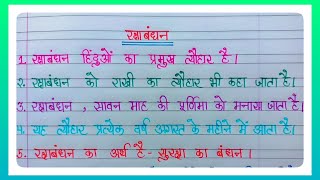 रक्षाबंधन
1. रक्षाबंधन हिंदुओं का प्रमुख त्यौहार है।
2. रक्षाबंधन को राखी का त्यौहार भी कहा जाता है।
3. रक्षाबंधन, सावन माह की पूर्णिमा को मनाया जाता है।
4. यह त्यौहार प्रत्येक वर्ष अगस्त के महीने में आता है।
5. रक्षाबंधन का अर्थ है - सुरक्षा का बंधन।